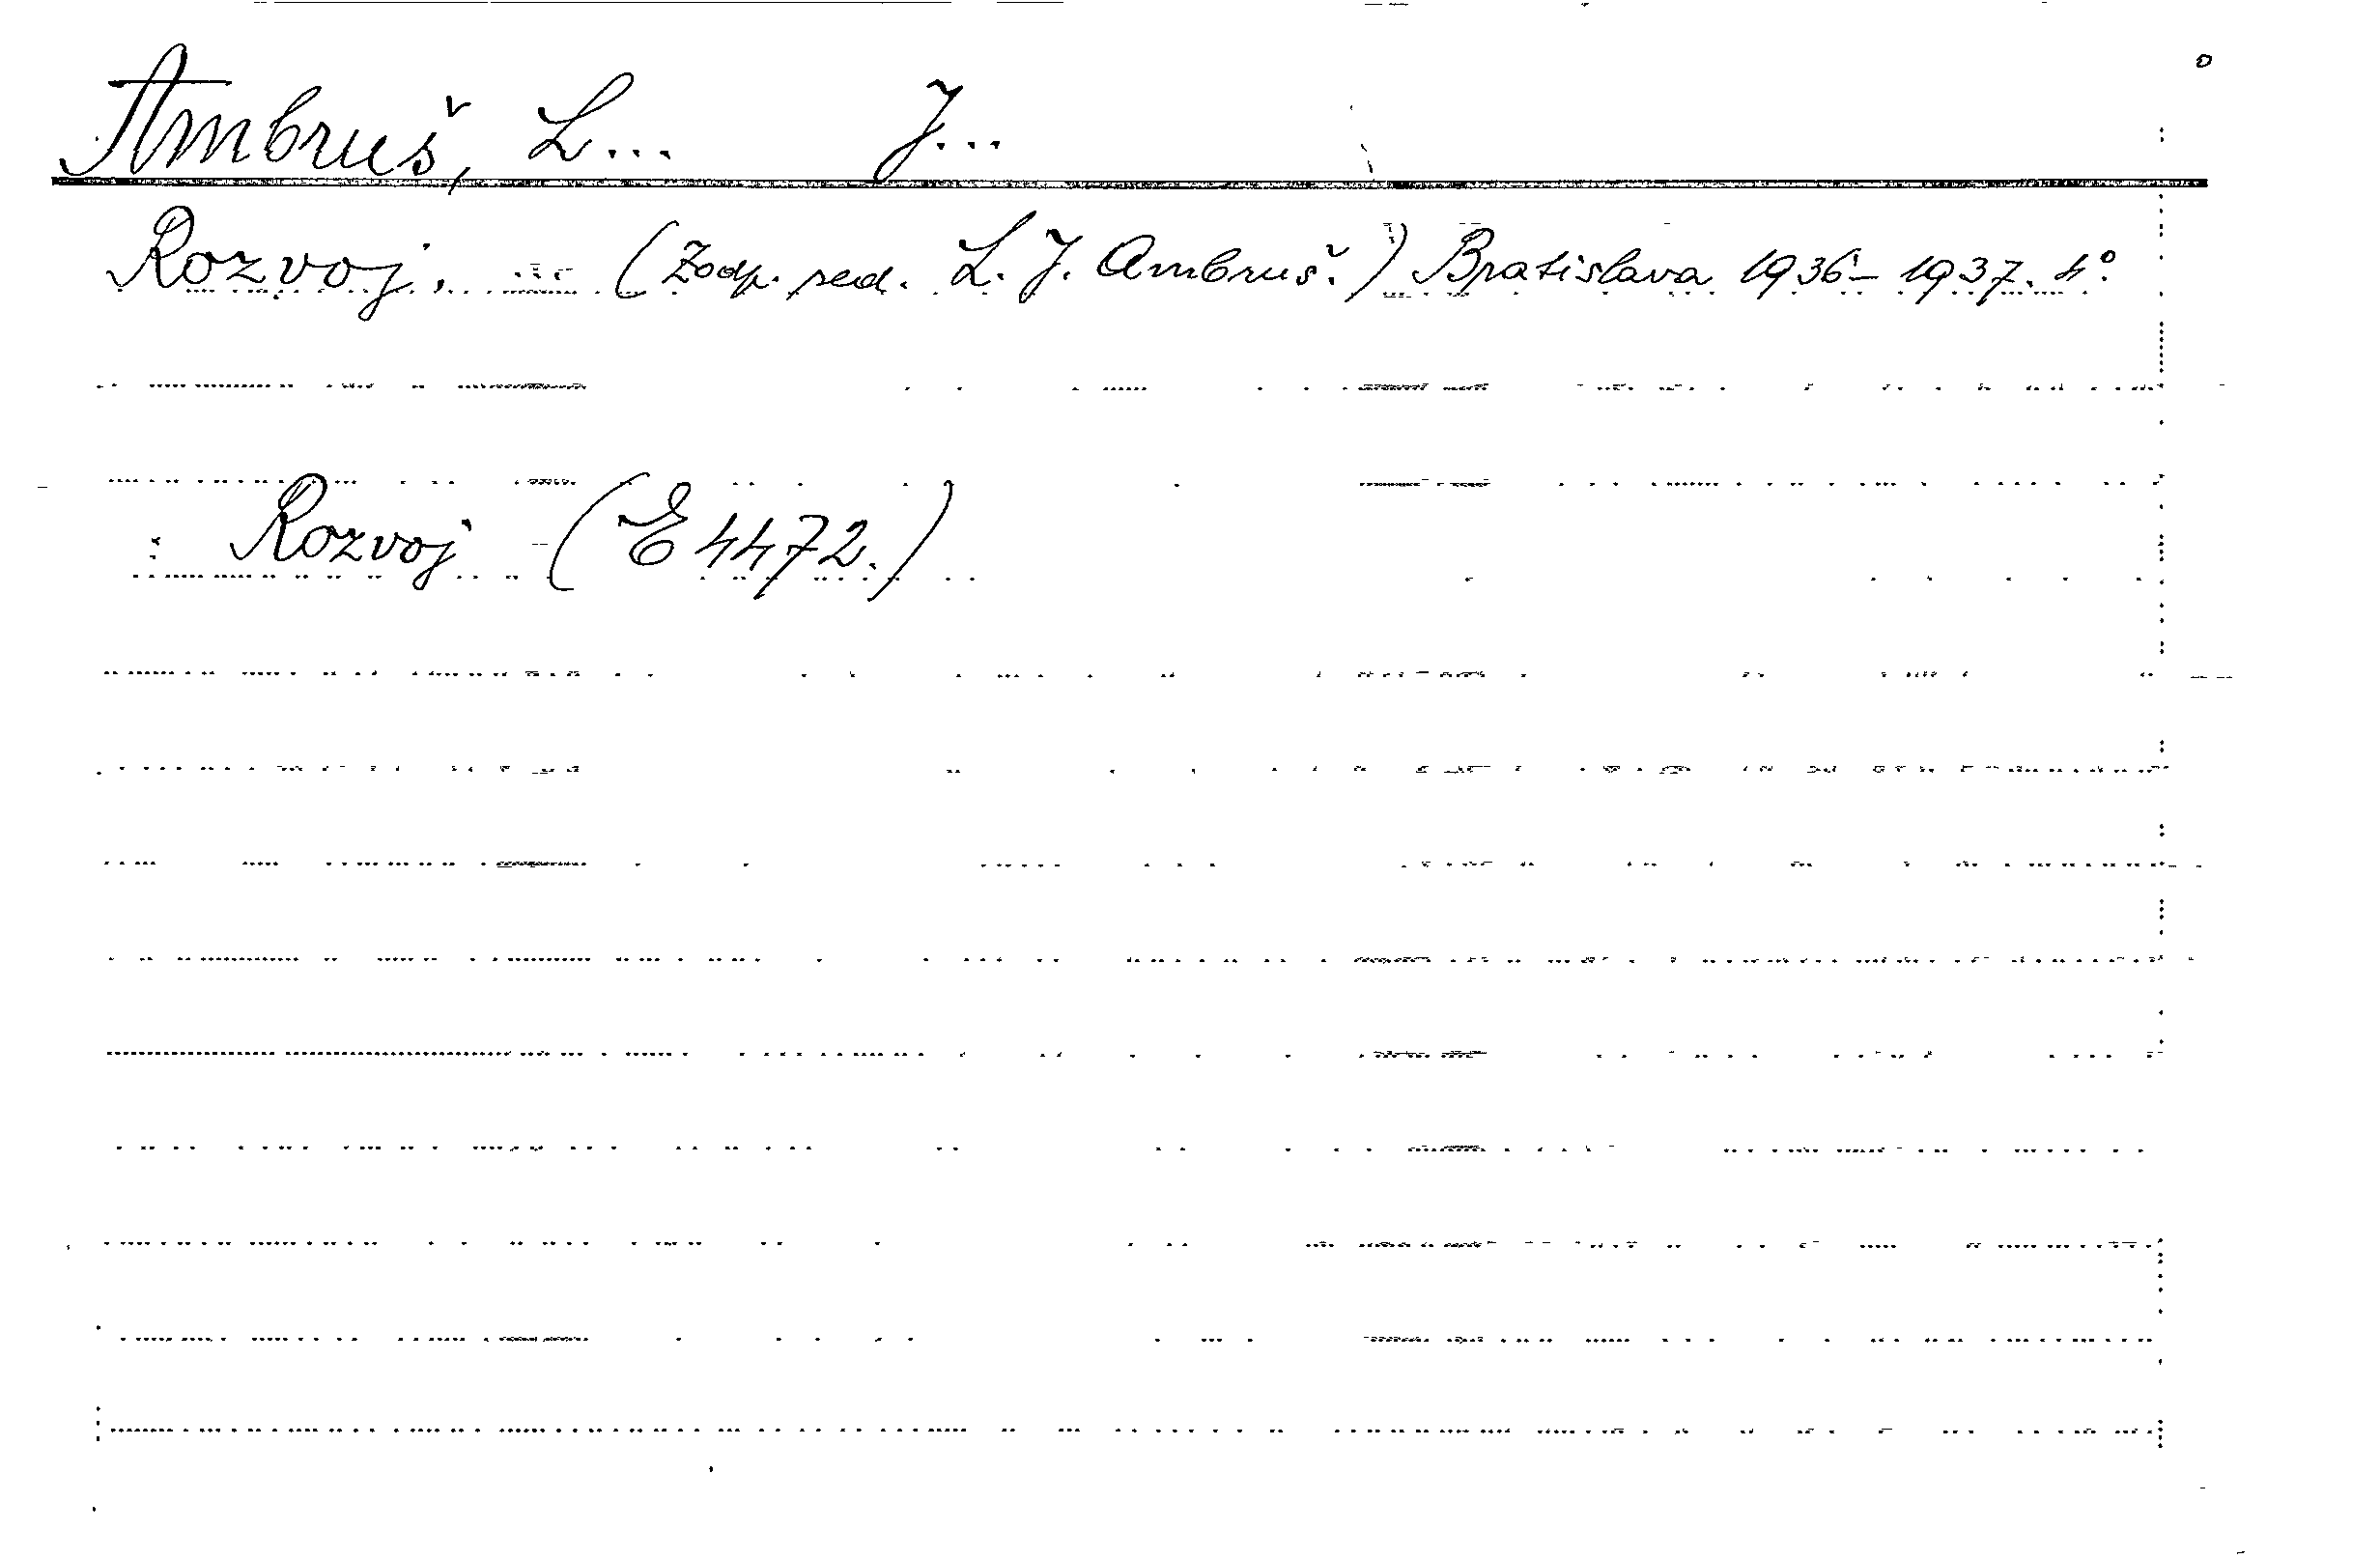 Ambruš, L... J...
Rozvoj. (Zodp. red. L. J. Ambruš.) Bratislava 1936–1937. 4°.
: Rozvoj (E 4472.)